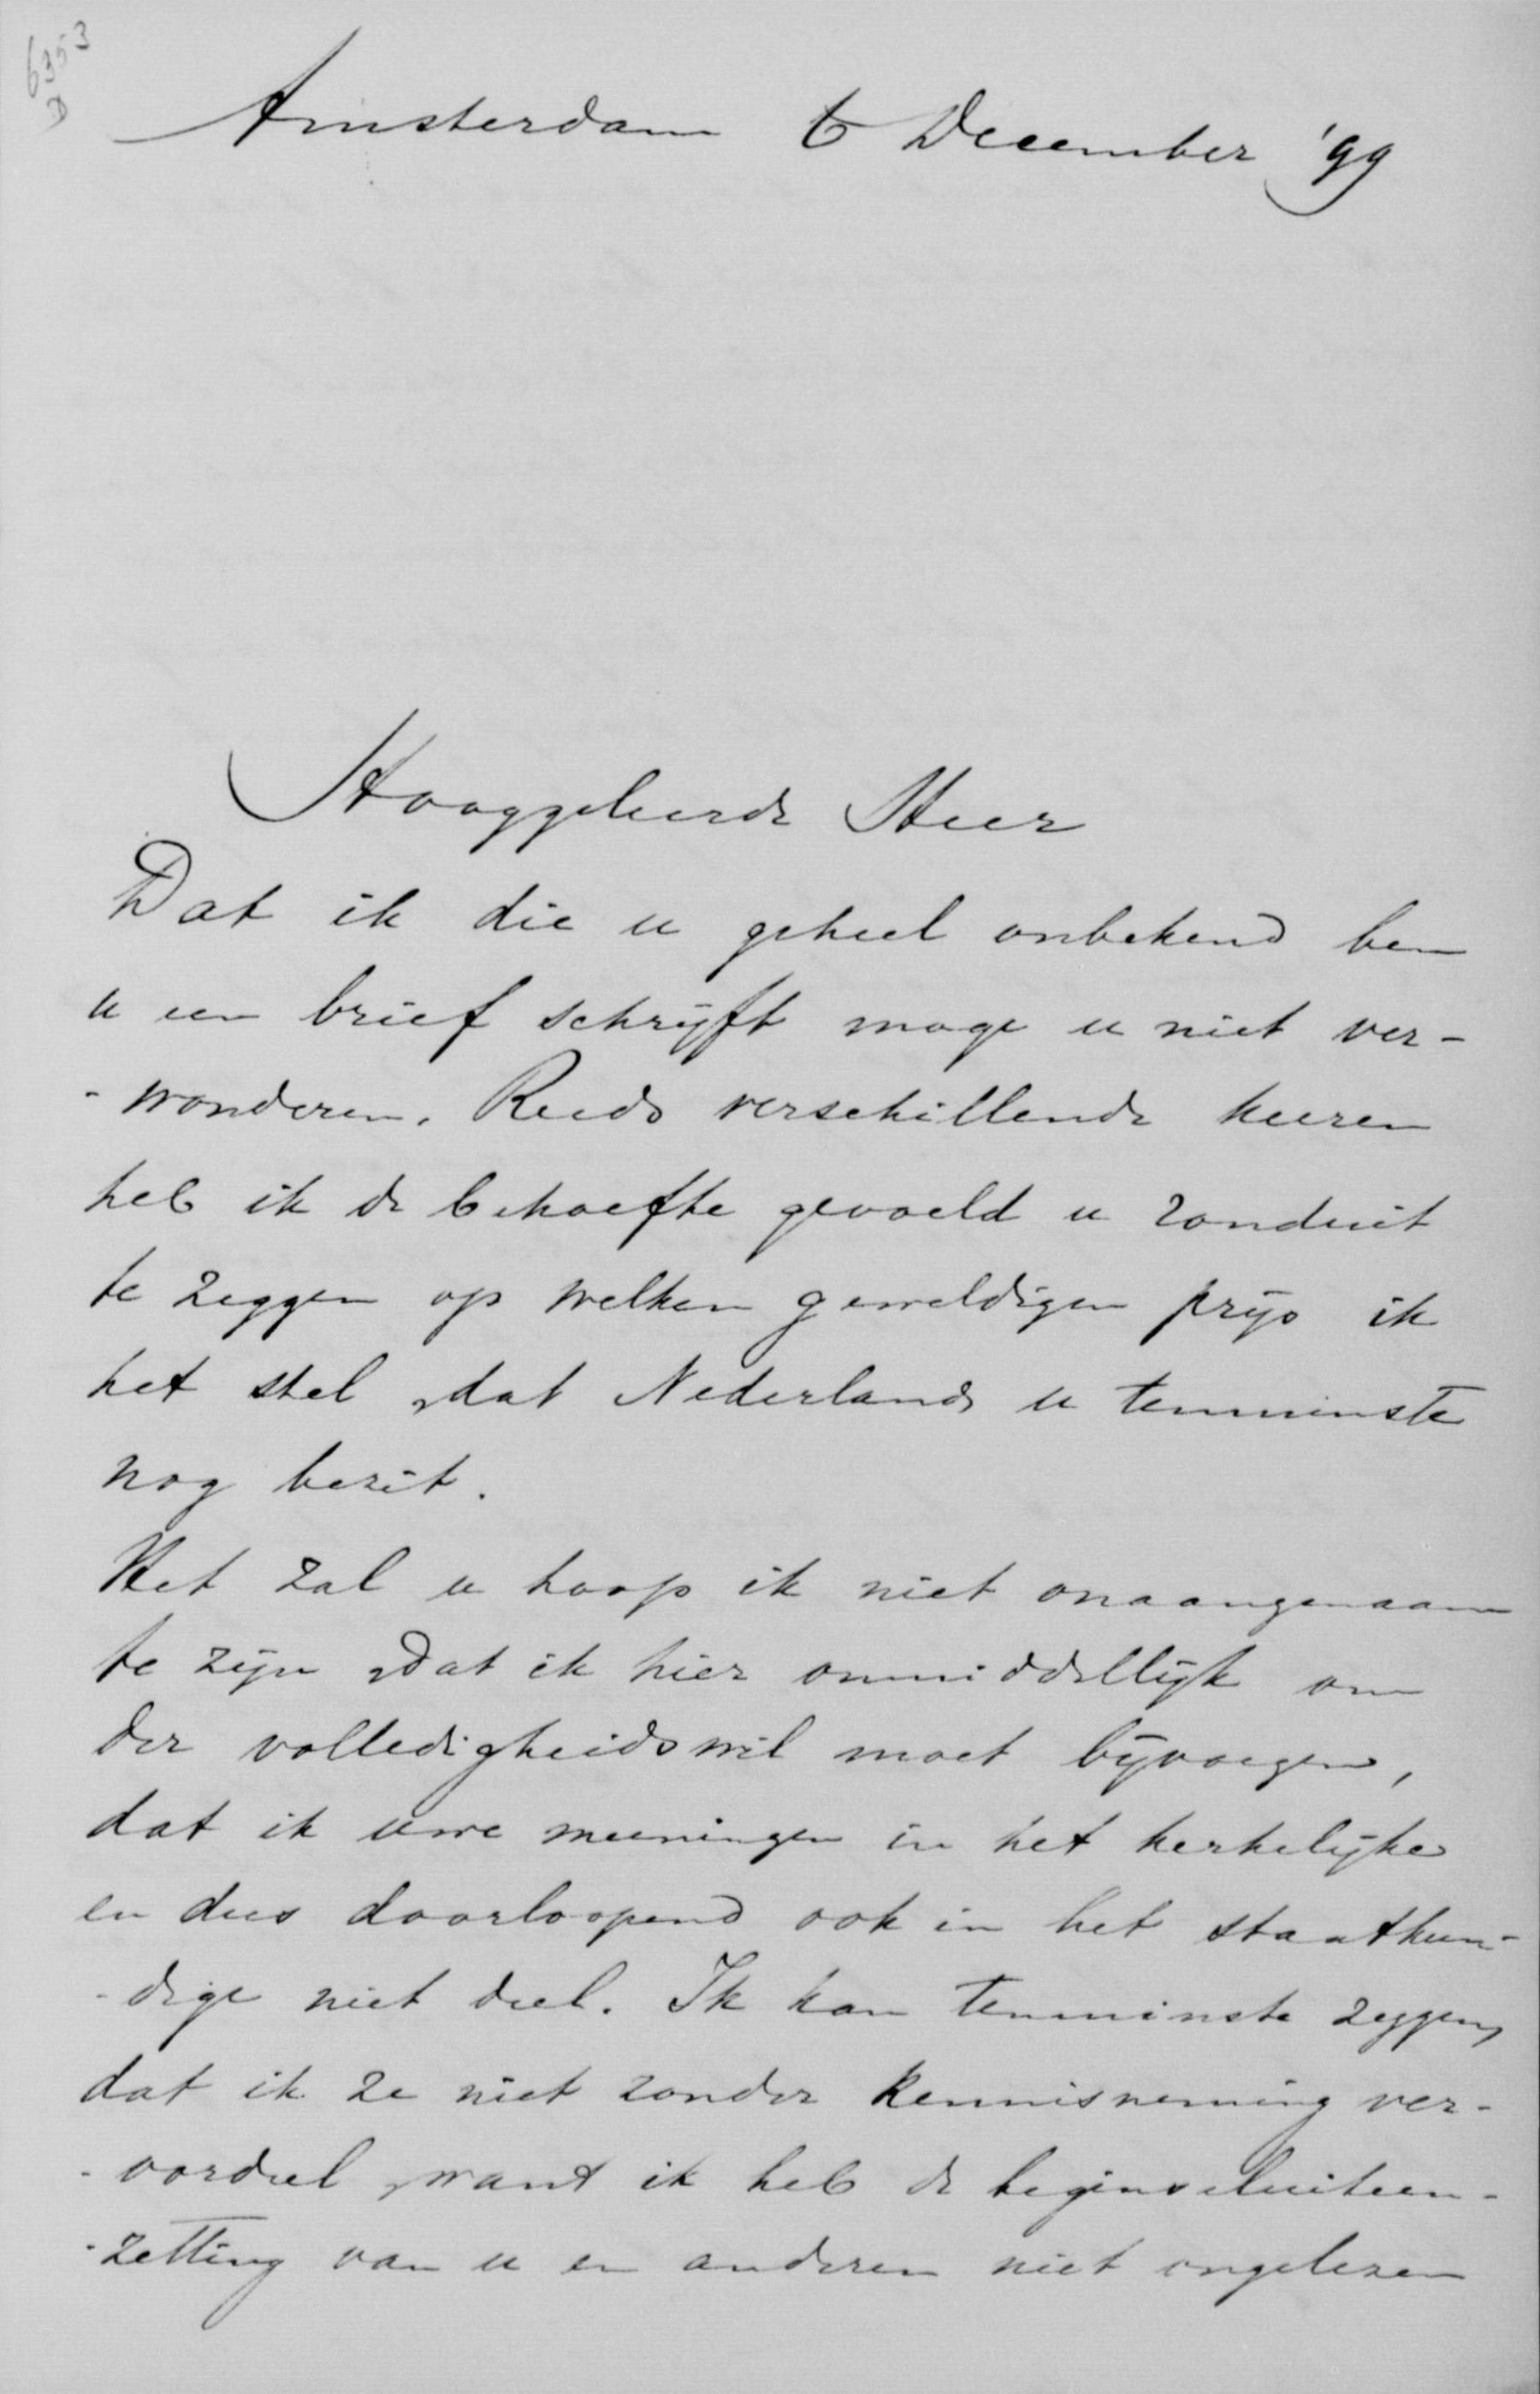 6353
D
Amsterdam 6 December '99
Hooggeleerde Heer
Dat ik die u geheel onbekend ben
u een brief schrijft moge u niet ver-
-wonderen. Reeds verschillende keeren
heb ik de behoefte gevoeld u ronduit
te zeggen op welken geweldigen prijs ik
het stel, dat Nederland u tenminste
nog bezit.
Het zal u hoop ik niet onaangenaam
te zijn, dat ik hier onmiddellijk om
der volledigheidswil moet bijvoegen,
dat ik uwe meeningen in het kerkelijke
en dus doorloopend ook in het staatkun-
-dige niet deel. Ik kan tenminste zeggen,
dat ik ze niet zonder kennisneming ver-
-oordeel, want ik heb de beginseluiteen-
-zetting van u en anderen niet ongelezen